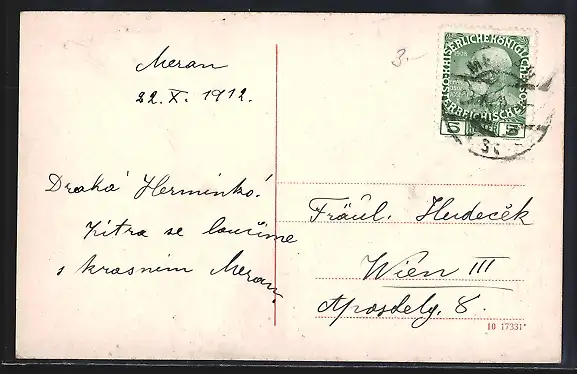 Meran
22. X. 1912.
3.-
Drahá Herminko!
Zítra se loučíme
s krasním Meran.
Fräul. Hudeček
Wien III
Apostelg. 8.
KAISERLICHE KÖNIGLICHE
ÖSTERREICHISCHE
5 5
10 17331*